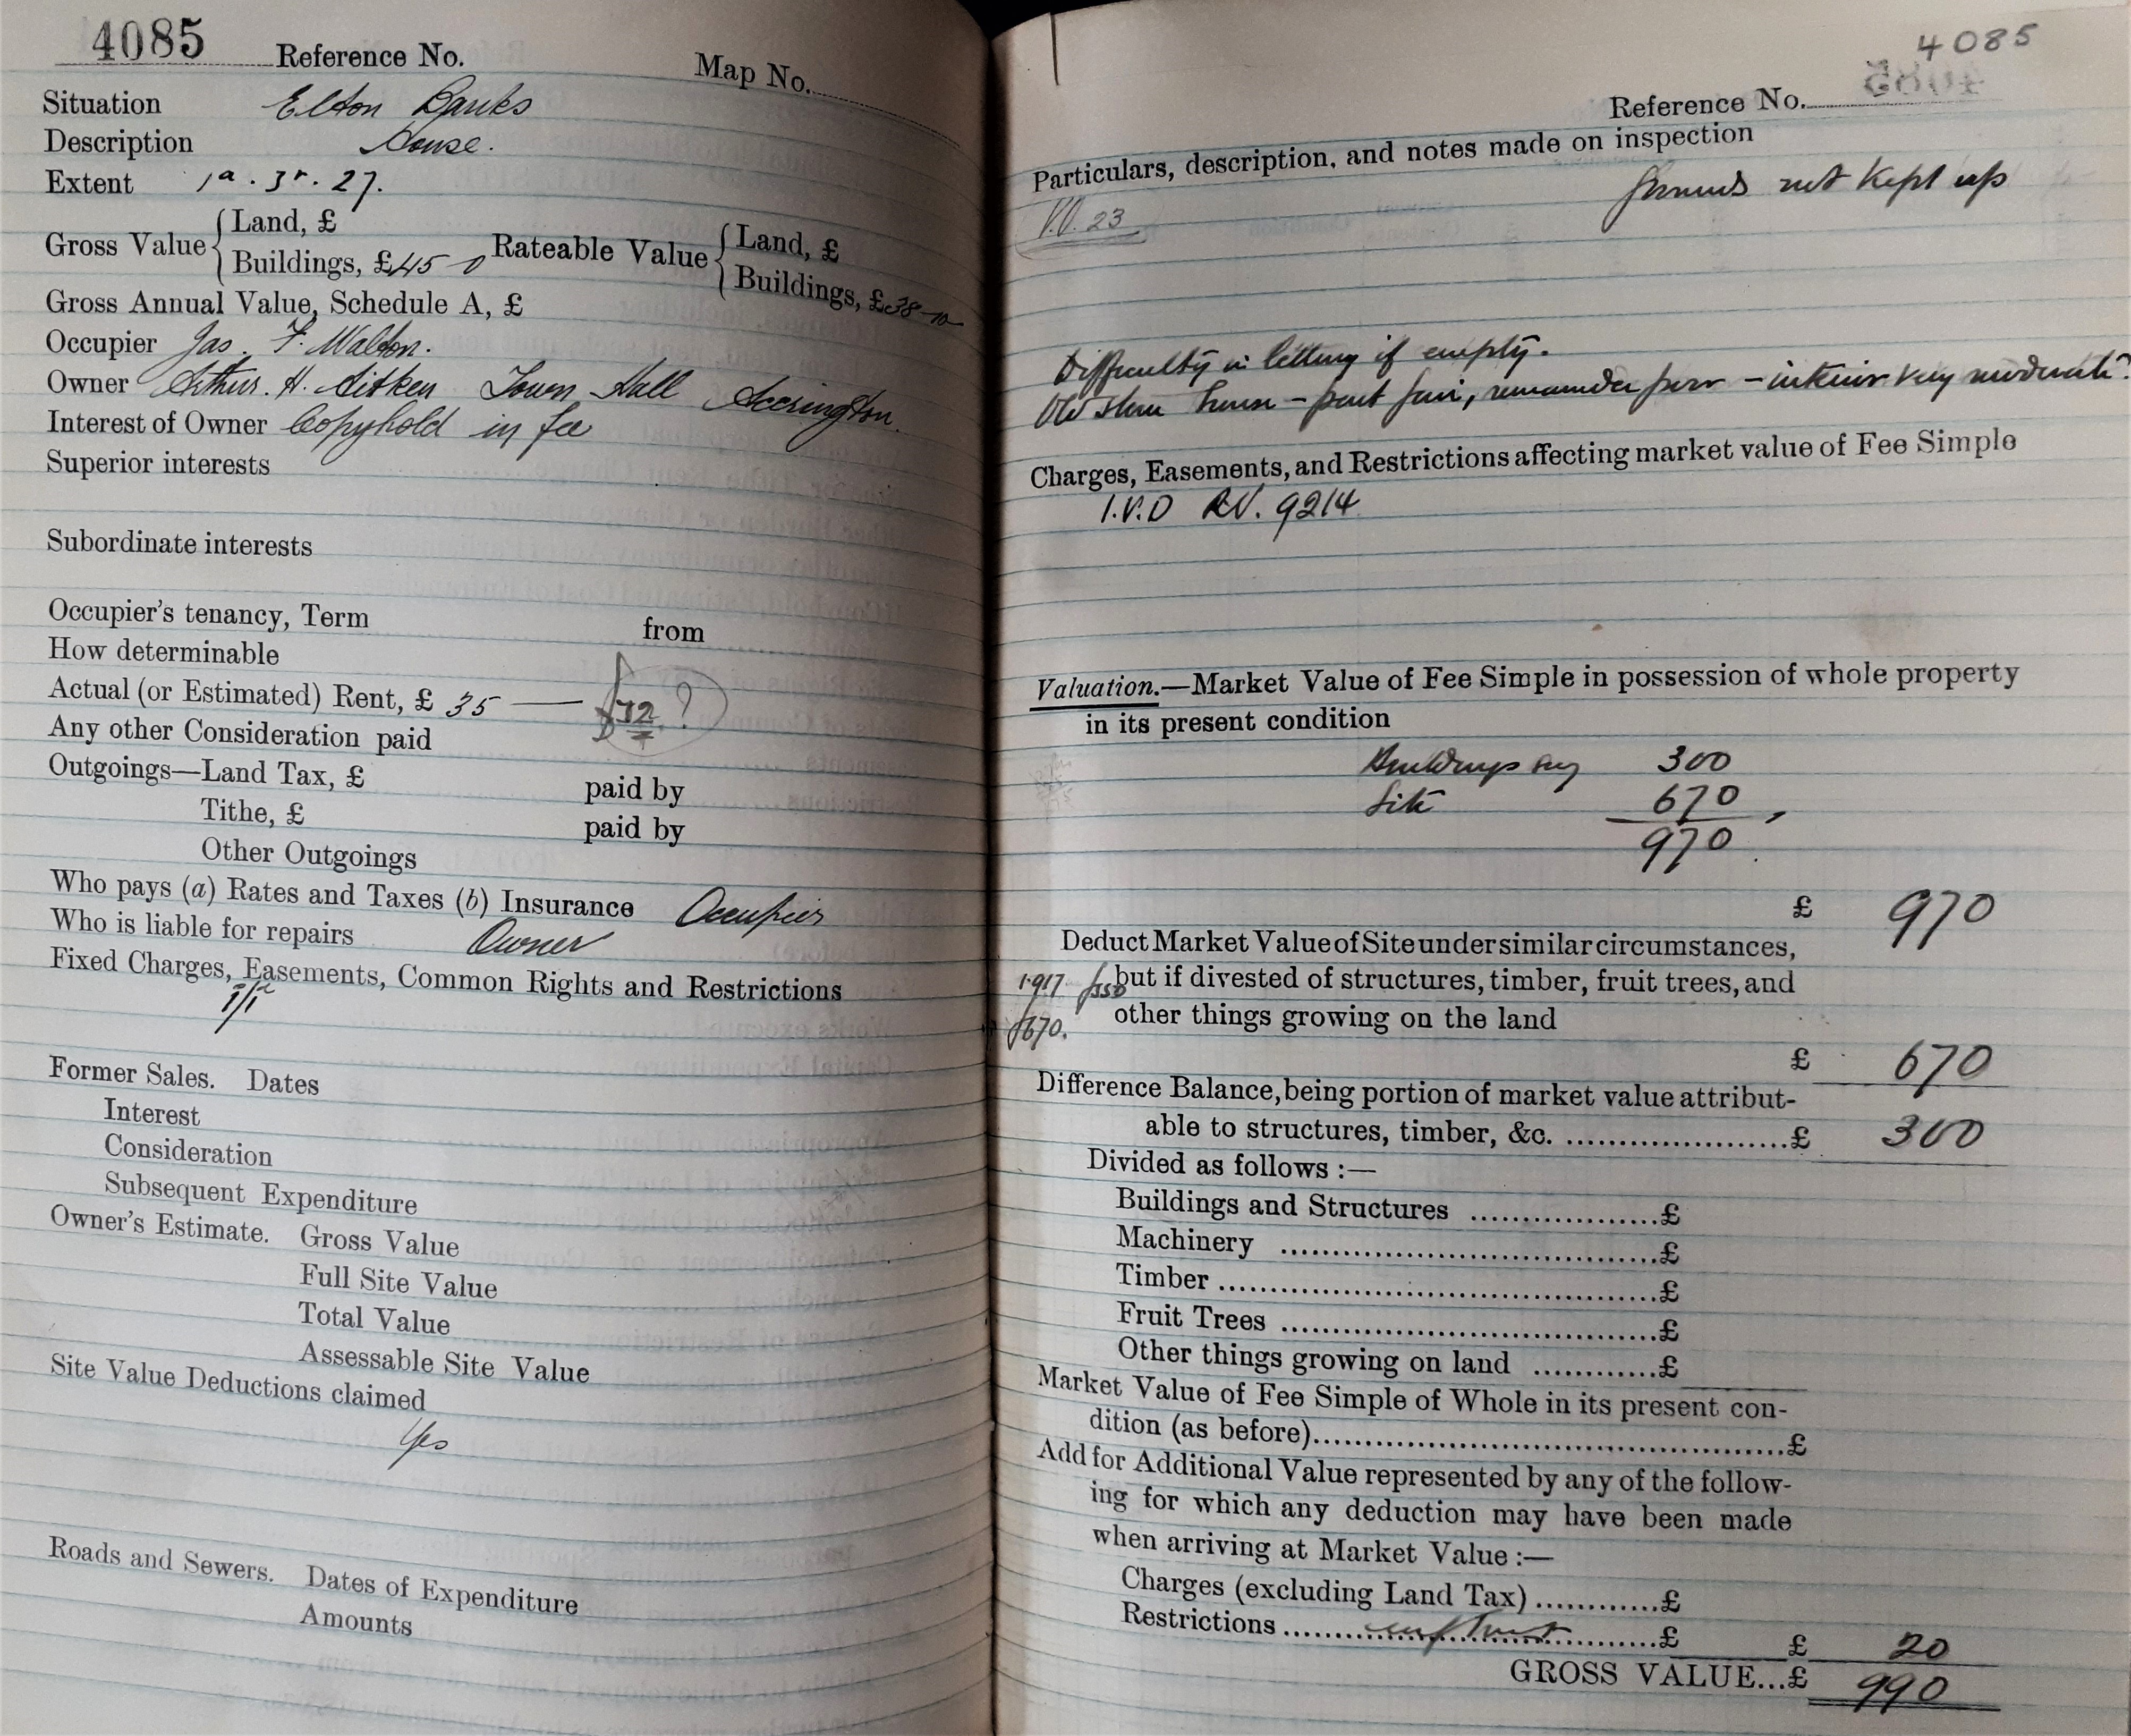 4085 Reference No. Map No.
Situation Elton Banks
Description House.
Extent 1a. 3r. 27.
Gross Value { Land, £
Buildings, £ 45-0
Rateable Value { Land, £
Buildings, £ 38-10
Gross Annual Value, Schedule A, £
Occupier Jas. F. Walton.
Owner Arthur. H. Aitken Town Hall Accrington.
Interest of Owner Copyhold in fee
Superior interests
Subordinate interests
Occupier's tenancy, Term from
How determinable
Actual (or Estimated) Rent, £ 35 —
Any other Consideration paid
Outgoings—Land Tax, £ paid by
Tithe, £ paid by
Other Outgoings
Who pays (a) Rates and Taxes (b) Insurance Occupier
Who is liable for repairs Owner
Fixed Charges, Easements, Common Rights and Restrictions
Former Sales. Dates
Interest
Consideration
Subsequent Expenditure
Owner's Estimate. Gross Value
Full Site Value
Total Value
Assessable Site Value
Site Value Deductions claimed
Yes
Roads and Sewers. Dates of Expenditure
Amounts
4085
Reference No.
Particulars, description, and notes made on inspection
Grounds not kept up
V.O. 23
Difficulty in letting if empty.
Old stone house – part fair, remainder poor – interior very moderate.
Charges, Easements, and Restrictions affecting market value of Fee Simple
I.V.D R.V. 9214
Valuation.—Market Value of Fee Simple in possession of whole property
in its present condition
Buildings say 300
Site 670
970
£ 970
Deduct Market Value of Site under similar circumstances,
but if divested of structures, timber, fruit trees, and
other things growing on the land
1.917 £350
£670.
£ 670
Difference Balance, being portion of market value attribut-
able to structures, timber, &c. ....................£ 300
Divided as follows :—
Buildings and Structures ..................£
Machinery ..................................£
Timber ........................................£
Fruit Trees ..................................£
Other things growing on land ............£
Market Value of Fee Simple of Whole in its present con-
dition (as before)..............................................£
Add for Additional Value represented by any of the follow-
ing for which any deduction may have been made
when arriving at Market Value :—
Charges (excluding Land Tax) ............£
Restrictions ....................................£ £ 20
GROSS VALUE...£ 990